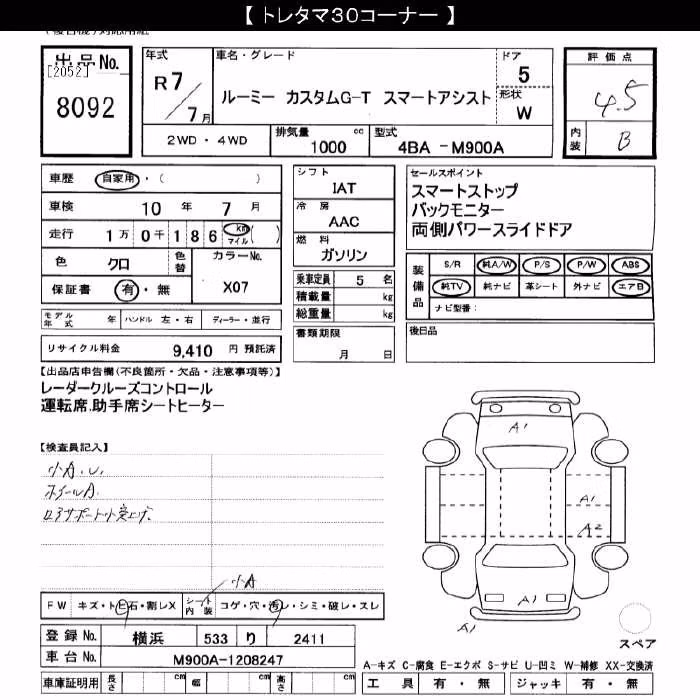 【 トレタマ30コーナー 】
出品No.
[2052]
8092
年式
R 7
7 月
車名・グレード
ルーミー カスタムG-T スマートアシスト
ドア
5
形状
W
2WD ・ 4WD
排気量 cc
1000
型式
4BA -M900A
評価点
4.5
内装
B
車歴 自家用 ・( )
車検 10 年 7 月
走行 1万 0千 1 8 6 Km マイル ( )
色 クロ 色替 カラーNo.
保証書 有・無 X07
モデル年式 年 ハンドル 左・右 ディーラー・並行
リサイクル料金 9,410 円 預託済
シフト
IAT
冷房
AAC
燃料
ガソリン
乗車定員 5 名
積載量 kg
総重量 kg
書類期限
月 日
セールスポイント
スマートストップ
バックモニター
両側パワースライドドア
装備品
S/R 純A/W P/S P/W ABS
純TV 純ナビ 革シート 外ナビ エアB
ナビ型番:
後日品
【出品店申告欄(不良箇所・欠品・注意事項等)】
レーダークルーズコントロール
運転席.助手席シートヒーター
【検査員記入】
小A.U.
ホイールA.
小A
FW キズ・トビ石・割レX シート内装 コゲ・穴・汚レ・シミ・破レ・スレ
登録No. 横浜 533 り 2411
車台No. M900A-1208247
車庫証明用 長さ cm 幅 cm 高さ cm
A1
A1
A2
A1
A1
スペア
A-キズ C-腐食 E-エクボ S-サビ U-凹ミ W-補修 XX-交換済
工具 有・無 ジャッキ 有・無